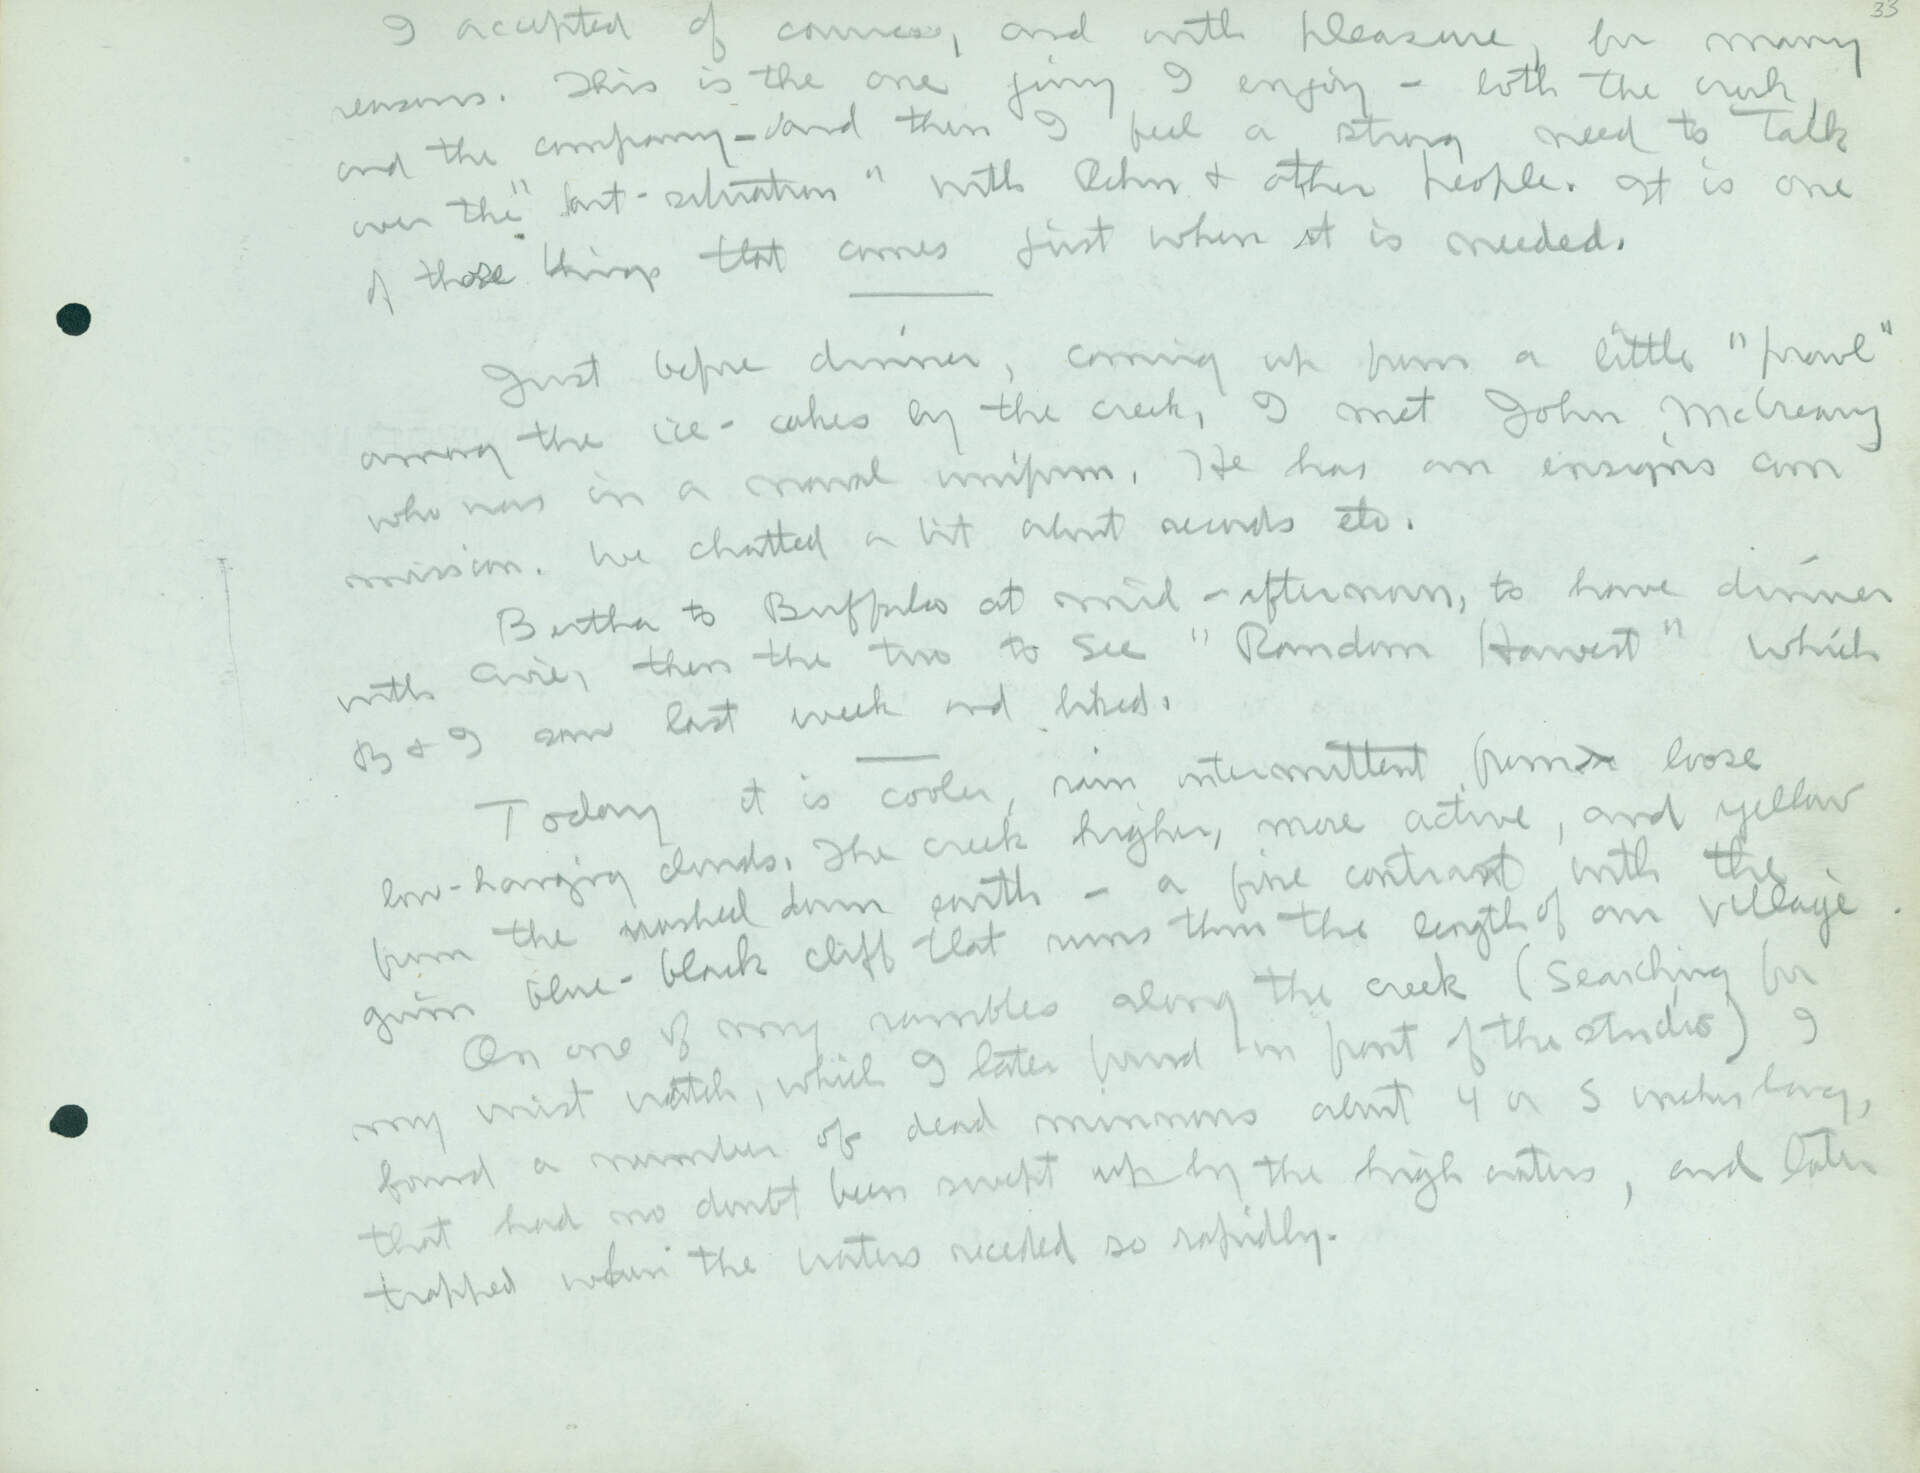 33
I accepted of course, and with pleasure, for many
reasons. This is the one jury I enjoy – both the work,
and the company – and then I feel a strong need to talk
over the "art-situation" with Rehn & other people. It is one
of those things that comes just when it is needed.
Just before dinner, coming up from a little "prowl"
among the ice-cakes by the creek, I met John McCreary
who was in a naval uniform. He has an ensigns com
mission. We chatted a bit about records etc.
Bertha to Buffalo at mid-afternoon, to have dinner
with then the two to see "Random Harvest" which
B & I saw last week and liked.
Today it is cooler, rain intermittent from loose
low-hanging clouds. The creek higher, more active, and yellow
from the washed down earth – a fine contrast with the
grim blue-black cliff that runs thru the length of our village.
On one of my rambles along the creek (searching for
my wrist watch, which I later found in front of the studio) I
found a number of dead minnows about 4 or 5 inches long,
that had no doubt been swept up by the high waters, and later
trapped when the waters receded so rapidly.